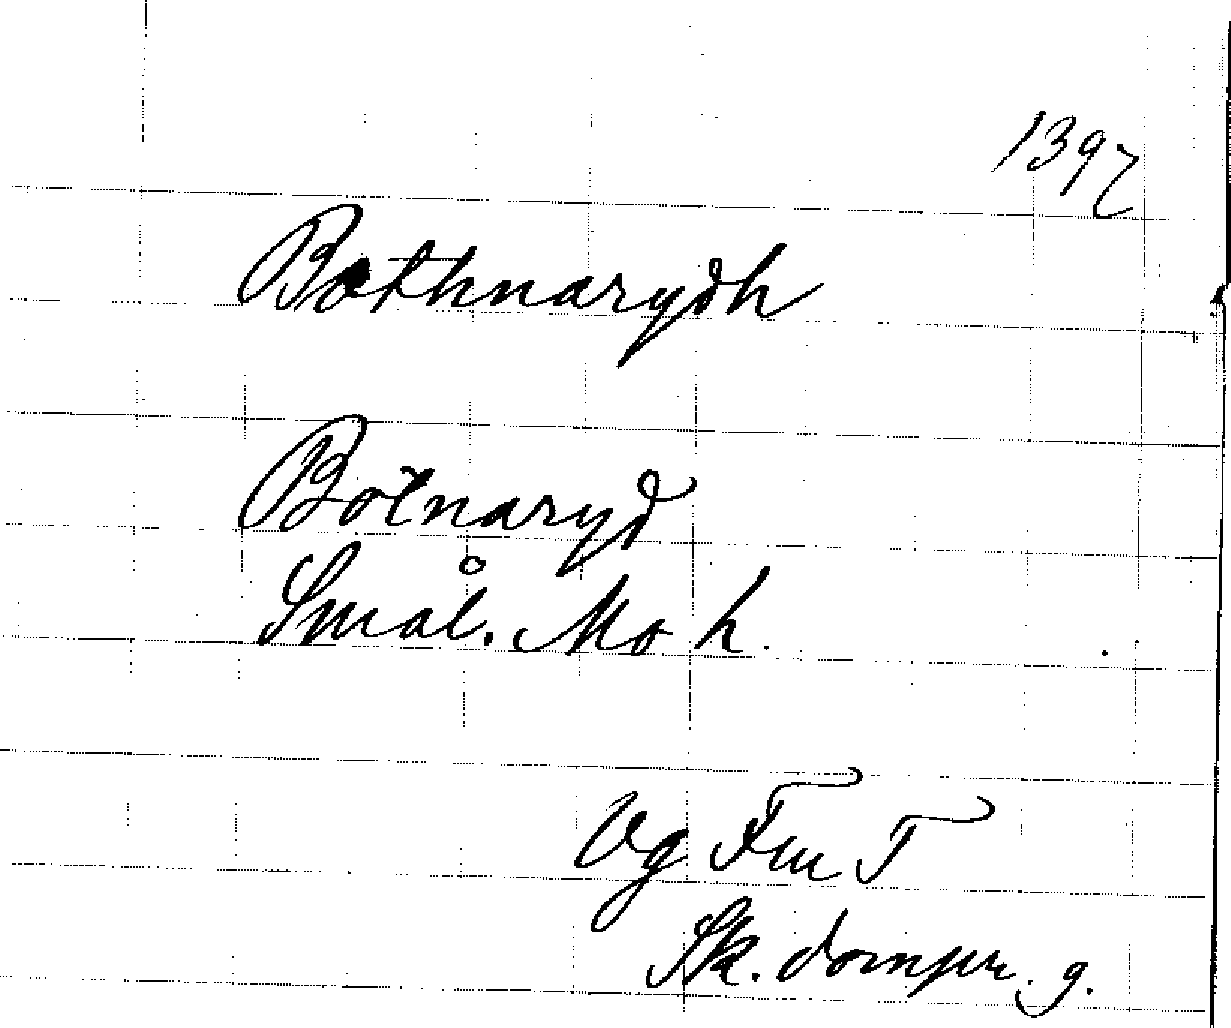 1397
Bothnarydh
Botnaryd
Smål. Mo h.
Vg Fm T
Sk. dompr. g.